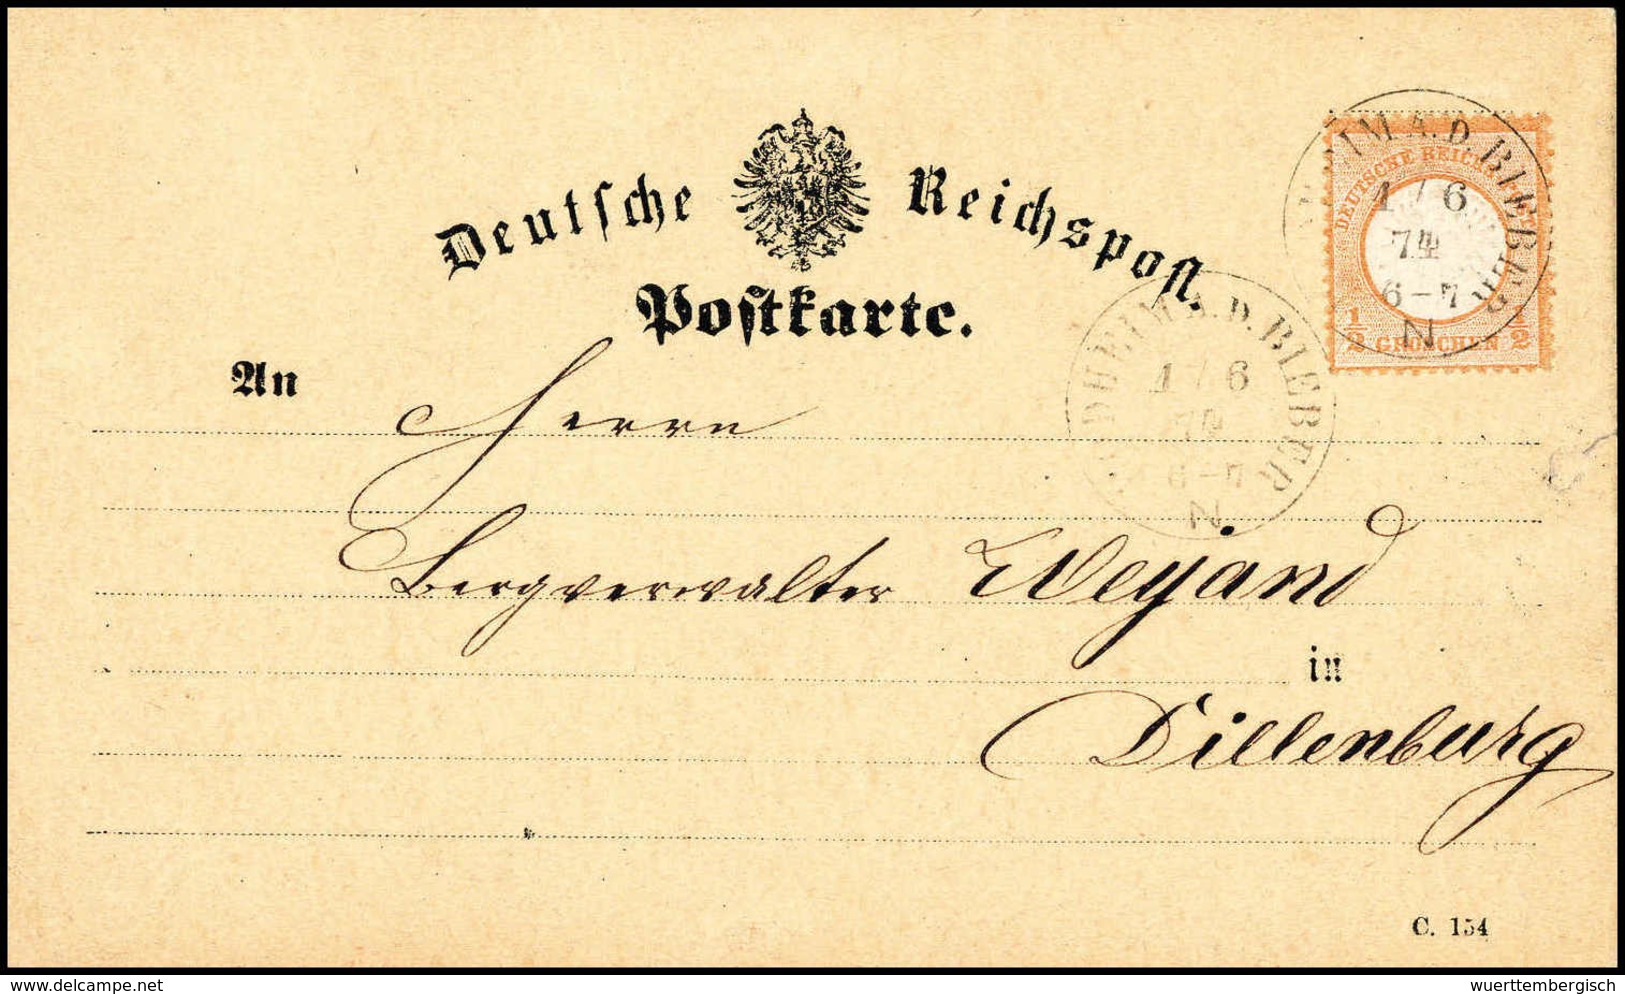 Deutsche Reichspost.
Postkarte.
DEUTSCHE REICHS-POST
½ GROSCHEN ½
A.D. BIEBER
1 / 6
74
6-7
N
A.D. BIEBER
1 / 6
74
6-7
N
An
Herrn
Bergverwalter Weyand
in
Dillenburg
C. 154
delcampe.net
wuerttembergisch